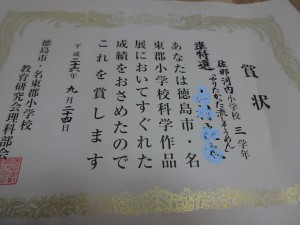 賞状
準特選
佐那河内小学校 三学年
おりたたた流しそうめん
あなたは徳島市・名
東郡小学校科学作品
展においてすぐれた
成績をおさめたので
これを賞します
平成二十六年九月二十四日
徳島市・名東郡小学校
教育研究会理科部会